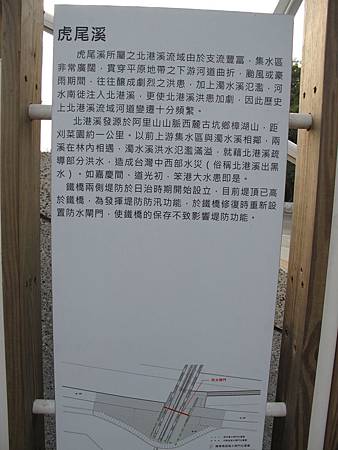 虎尾溪
虎尾溪所屬之北港溪流域由於支流豐富，集水區
非常廣闊，貫穿平原地帶之下游河道曲折，颱風或豪
雨期間，往往釀成劇烈之洪患，加上濁水溪氾濫，河
水南徙注入北港溪，更使北港溪洪患加劇，因此歷史
上北港溪流域河道變遷十分頻繁。
北港溪發源於阿里山山脈西麓古坑鄉樟湖山，距
刈菜園約一公里。以前上游集水區與濁水溪相鄰，兩
溪在林內相遇，濁水溪洪水氾濫滿溢，就藉北港溪疏
導部分洪水，造成台灣中西部水災（俗稱北港溪出黑
水）。如嘉慶間、道光初，笨港大水患即是。
鐵橋兩側堤防於日治時期開始設立，目前堤頂已高
於鐵橋，為發揮堤防防汛功能，於鐵橋修復時重新設
置防水閘門，使鐵橋的保存不致影響堤防功能。